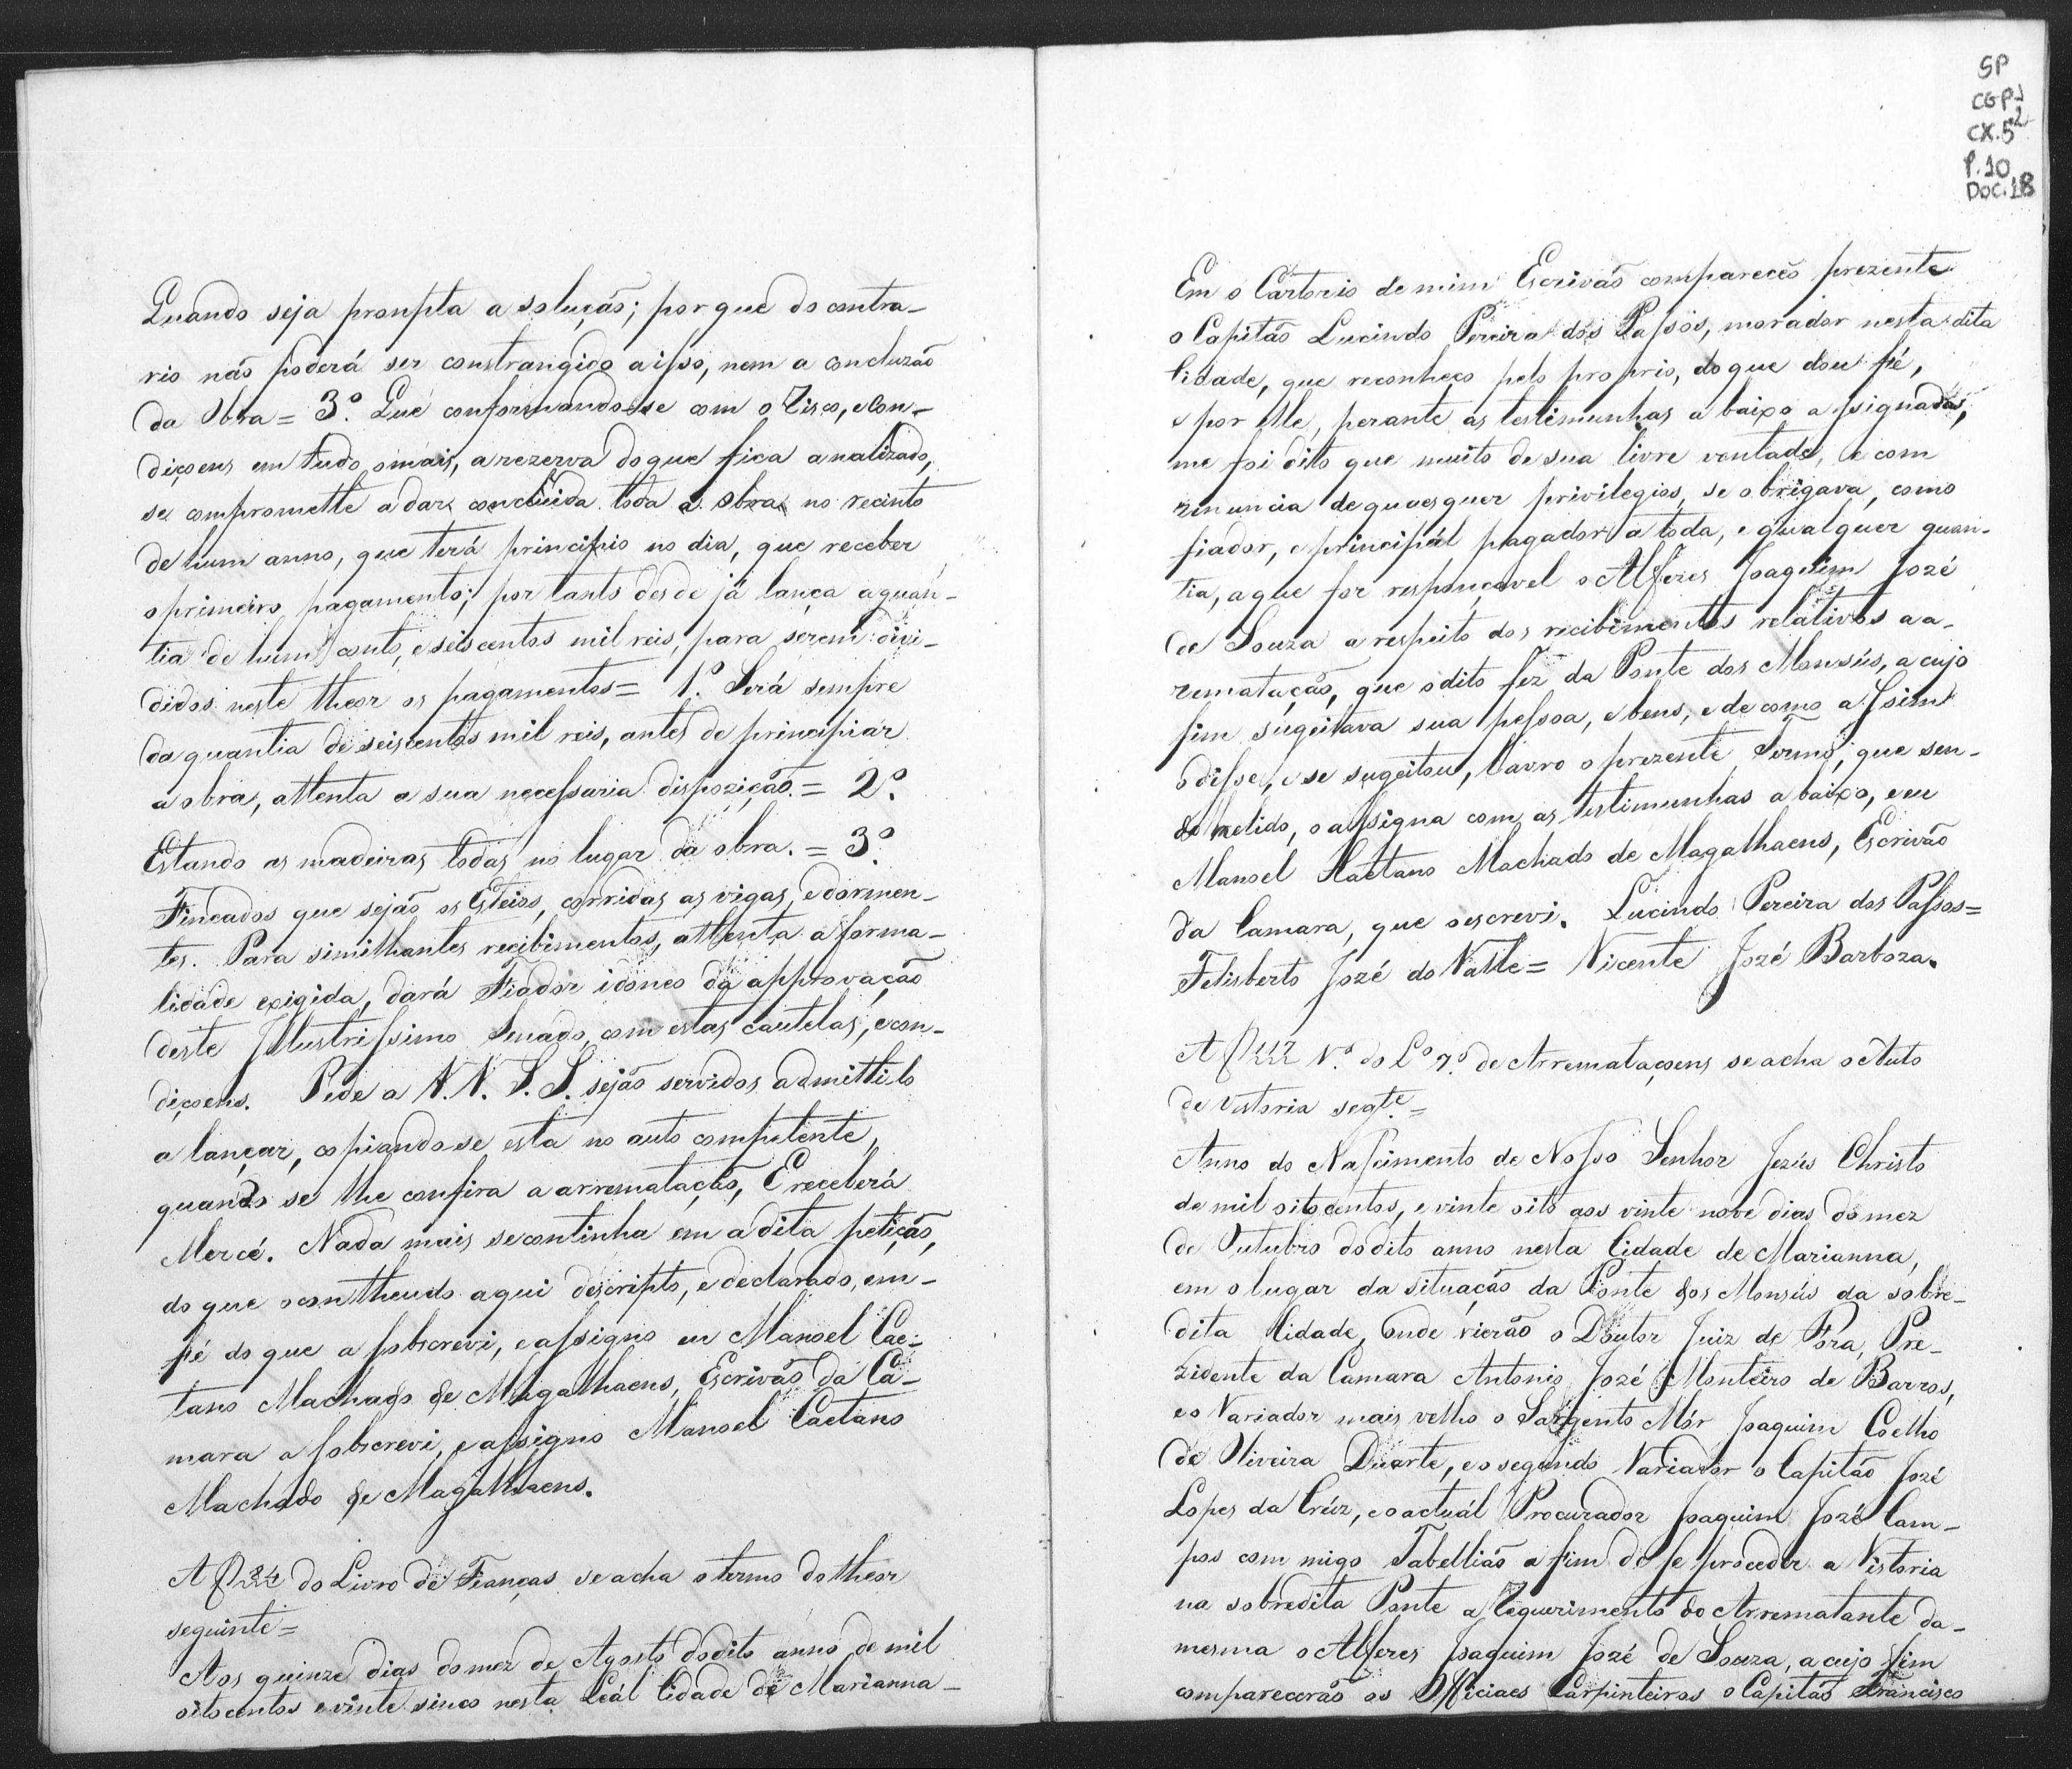 Quando seja pronpta a solução; por que do contra-
rio não poderá ser constrangido a isso, nem a concluzão
da Obra = 3.º Que conformando-se com o Risco, e Con-
diçoens em tudo o mais, a rezerva do que fica analizado,
se compromette a dar concluida toda a obra no recinto
de hum anno, que terá principio no dia, que receber
o primeiro pagamento; por tanto desde já lança a quan-
tia de hum conto, e seiscentos mil reis, para serem divi-
didos neste theor os pagamentos = 1.º Será sempre
da quantia de seiscentos mil reis, antes de principiar
a obra, attenta a sua necessaria dispozição. = 2.º
Estando as madeiras todas no lugar da obra. = 3.º
Fincados que sejão os Esteios, corridas as vigas, e dormen-
tes. Para similhantes recibimentos, attenta a forma-
lidade exigida, dará Fiador idoneo da approvação
deste Illustrissimo Senado, com estas cautelas, e con-
diçoens. Pede a V.V. S.S. sejão servidos admitti-lo
a lançar, copiando-se esta no auto competente,
quando se lhe confira a arrematação, E receberá
Mercé. Nada mais se continha em a dita petição,
do que o contheudo aqui descripto, e declarado, em-
fé do que a sobscrevi, e assigno eu Manoel Cae-
tano Machado de Magalhaens, Escrivão da Ca-
mara a sobscrevi, e assigno Manoel Caetano
Machado de Magalhaens.
A f do Livro de Fianças se acha o termo do theor
seguinte =
Aos quinze dias do mez de Agosto do dito anno de mil
oitocentos e vinte sinco nesta Leál Cidade de Marianna-
SP
CGP-1
CX.52
P.10
DOC.18
Em o Cartorio de mim Escrivão compareceo prezente
o Capitão Lucindo Pereira dos Passos, morador nesta dita
Cidade, que reconheço pelo proprio, do que dou fé,
e por elle, perante as testimunhas a baixo assignadas,
me foi dito que muito de sua livre vontade, e com
renuncia de quaesquer privilegios, se obrigava, como
fiador, e principál pagador a toda, e qualquer quan-
tia, a que for responçavel o Alferes Joaquim Jozé
de Souza a respeito dos recibimentos relativos a a-
rematação, que o dito fez da Ponte dos Monsús, a cujo
fim sugeitava sua pessoa, e bens, e de como assim
o disse, e se sugeitou, lavro o prezente Termo, que sen-
do lido, o assigna com as testimunhas a baixo, e eu
Manoel Caetano Machado de Magalhaens, Escrivão
da Camara, que o escrevi. Lucindo Pereira dos Passos =
Felisberto Jozé do Valle = Vicente Jozé Barboza.
A f 112 V.º do L.º 7.º de Arremataçoens se acha o Auto
de vistoria segt.e =
Anno do Nascimento de Nosso Senhor Jezús Christo
de mil oitocentos, e vinte oito aos vinte nove dias do mez
de Outubro do dito anno nesta Cidade de Marianna,
em o lugar da situação da Ponte dos Monsús da sobre-
dita Cidade, onde vierão o Doutor Juiz de Fóra, Pre-
zidente da Camara Antonio Jozé Monteiro de Barros,
e o Variador mais velho o Sargento Mór Joaquim Coelho
de Oliveira Duarte, e o segundo Variador o Capitão Jozé
Lopes da Crúz, e o actuál Procurador Joaquim Jozé Cam-
pos com migo Tabellião a fim de se proceder a Vistoria
na sobredita Ponte a Requerimento do Arrematante da-
mesma o Alferes Joaquim Jozé de Souza, a cujo fim
comparecerão os Officiaes Carpinteiros o Capitão Francisco